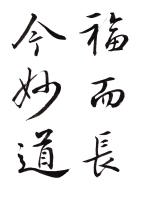 福而長
今妙道